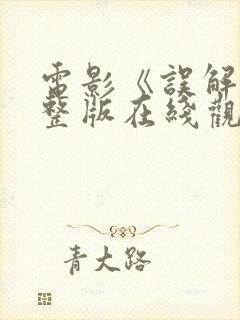 電影《誤解
整版在綫觀
青大路